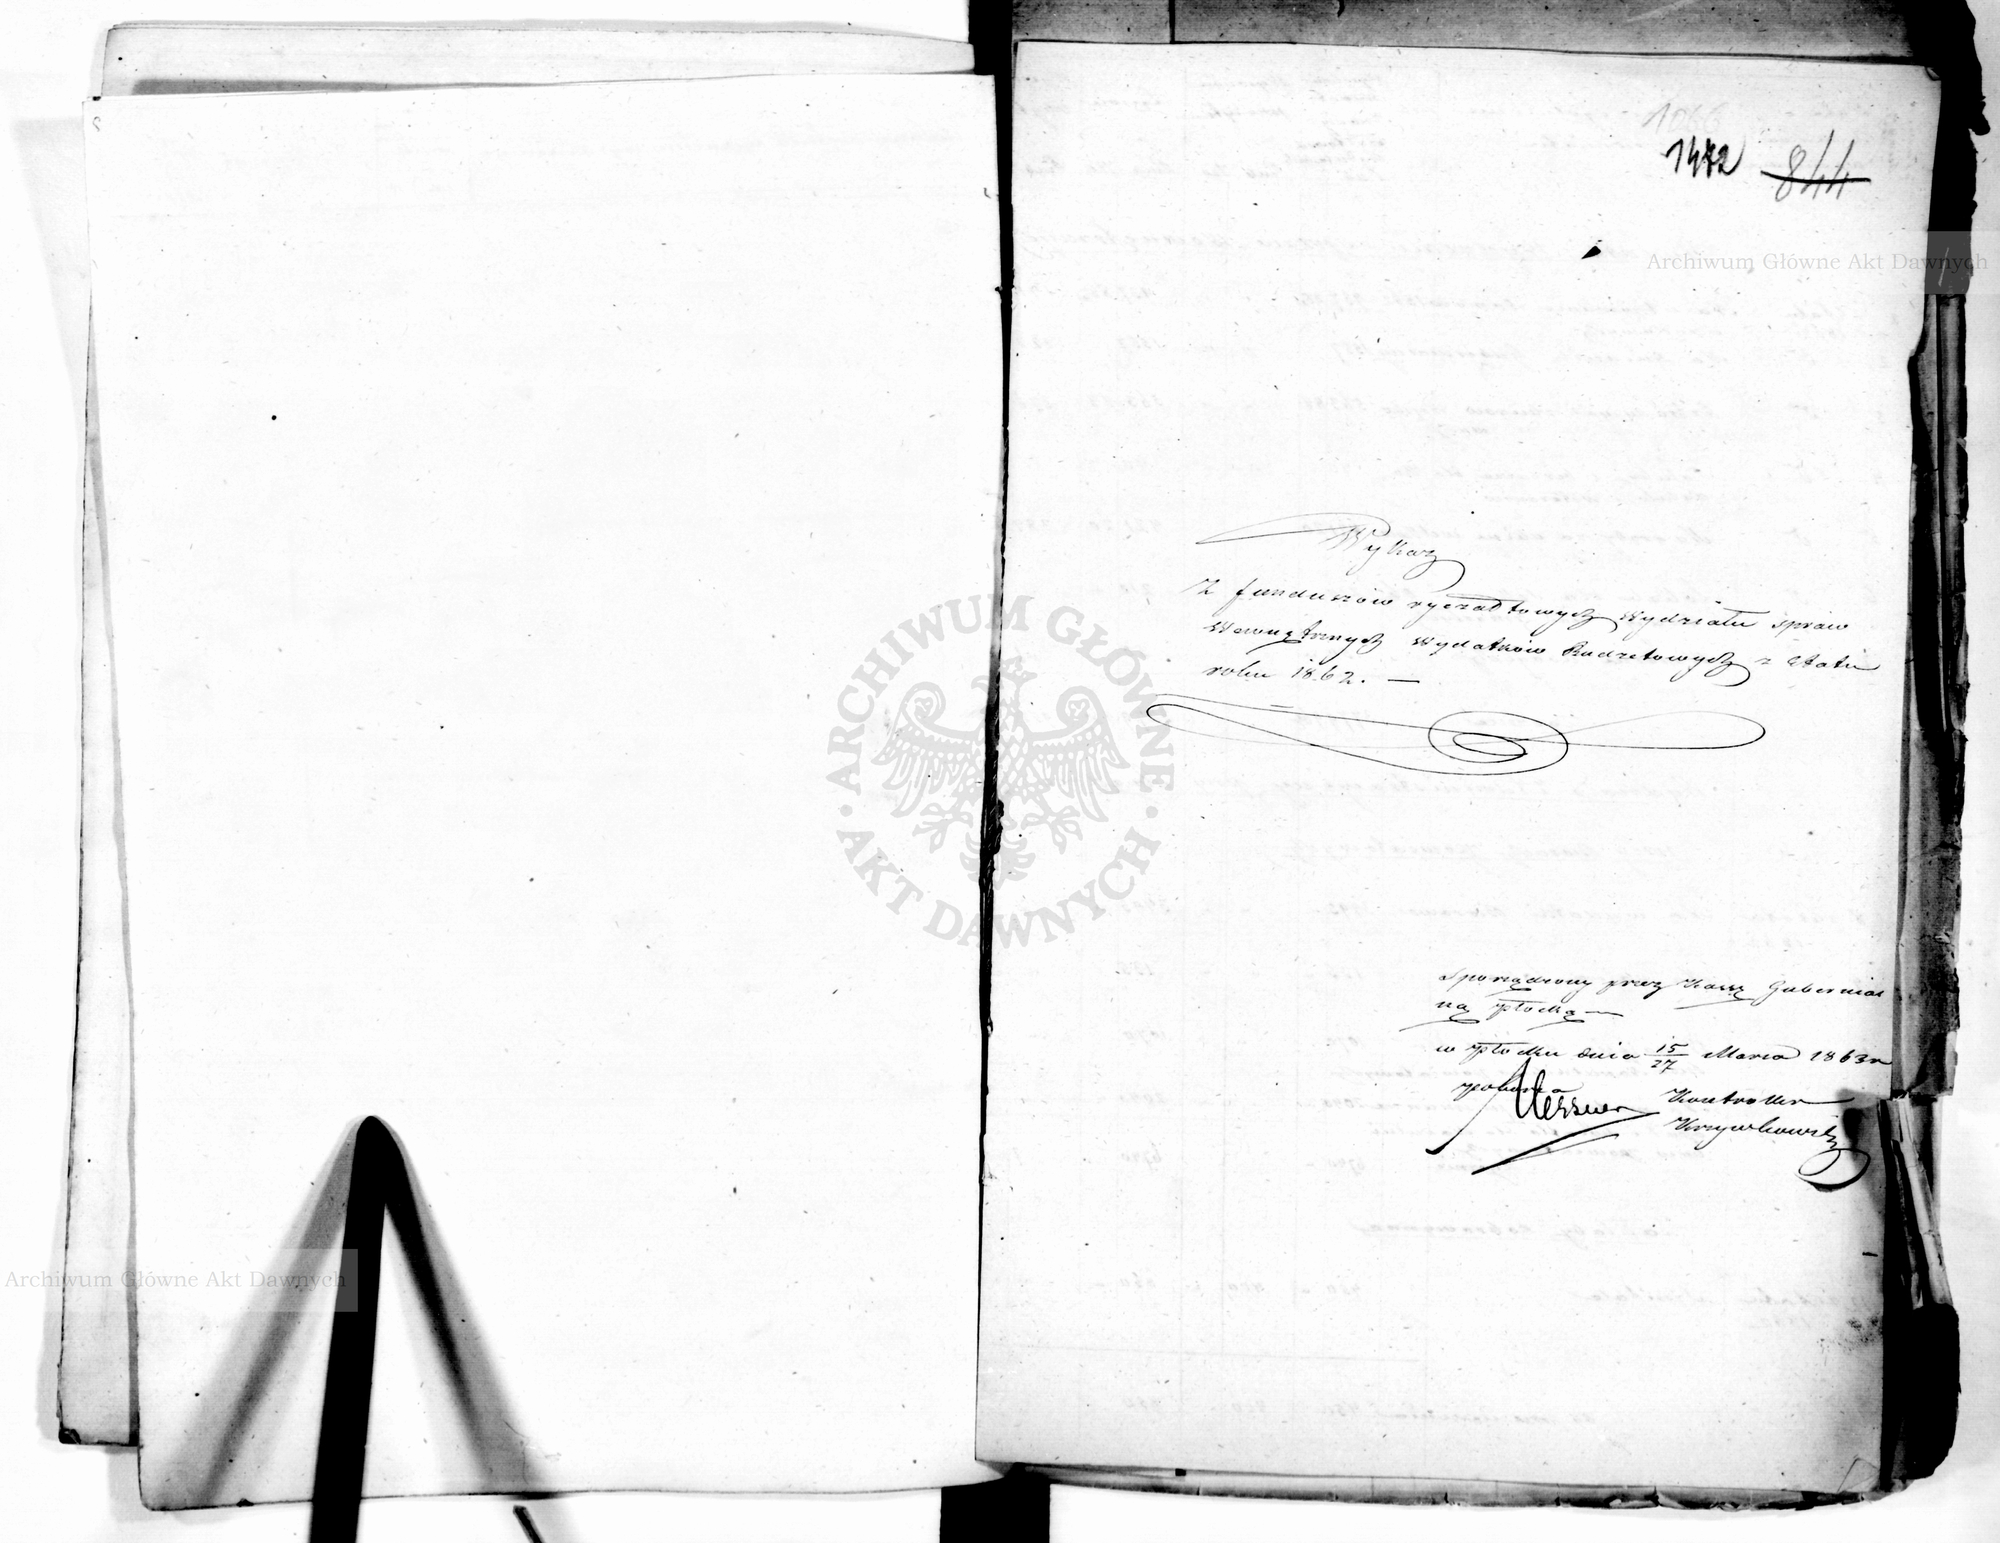 1066
1472 844
Archiwum Główne Akt Dawnych
Wykaz
Z funduszów ryczałtowych Wydziału spraw
Wewnętrznych Wydatków Budżetowych z Etatu
roku 1862. —
ARCHIWUM GŁÓWNE AKT DAWNYCH
Sporządzony przez Kassę Gubernial
ną Płocką —
w Płocku dnia 15/27 Marca 1863 r
Kontroller
Archiwum Główne Akt Dawnych